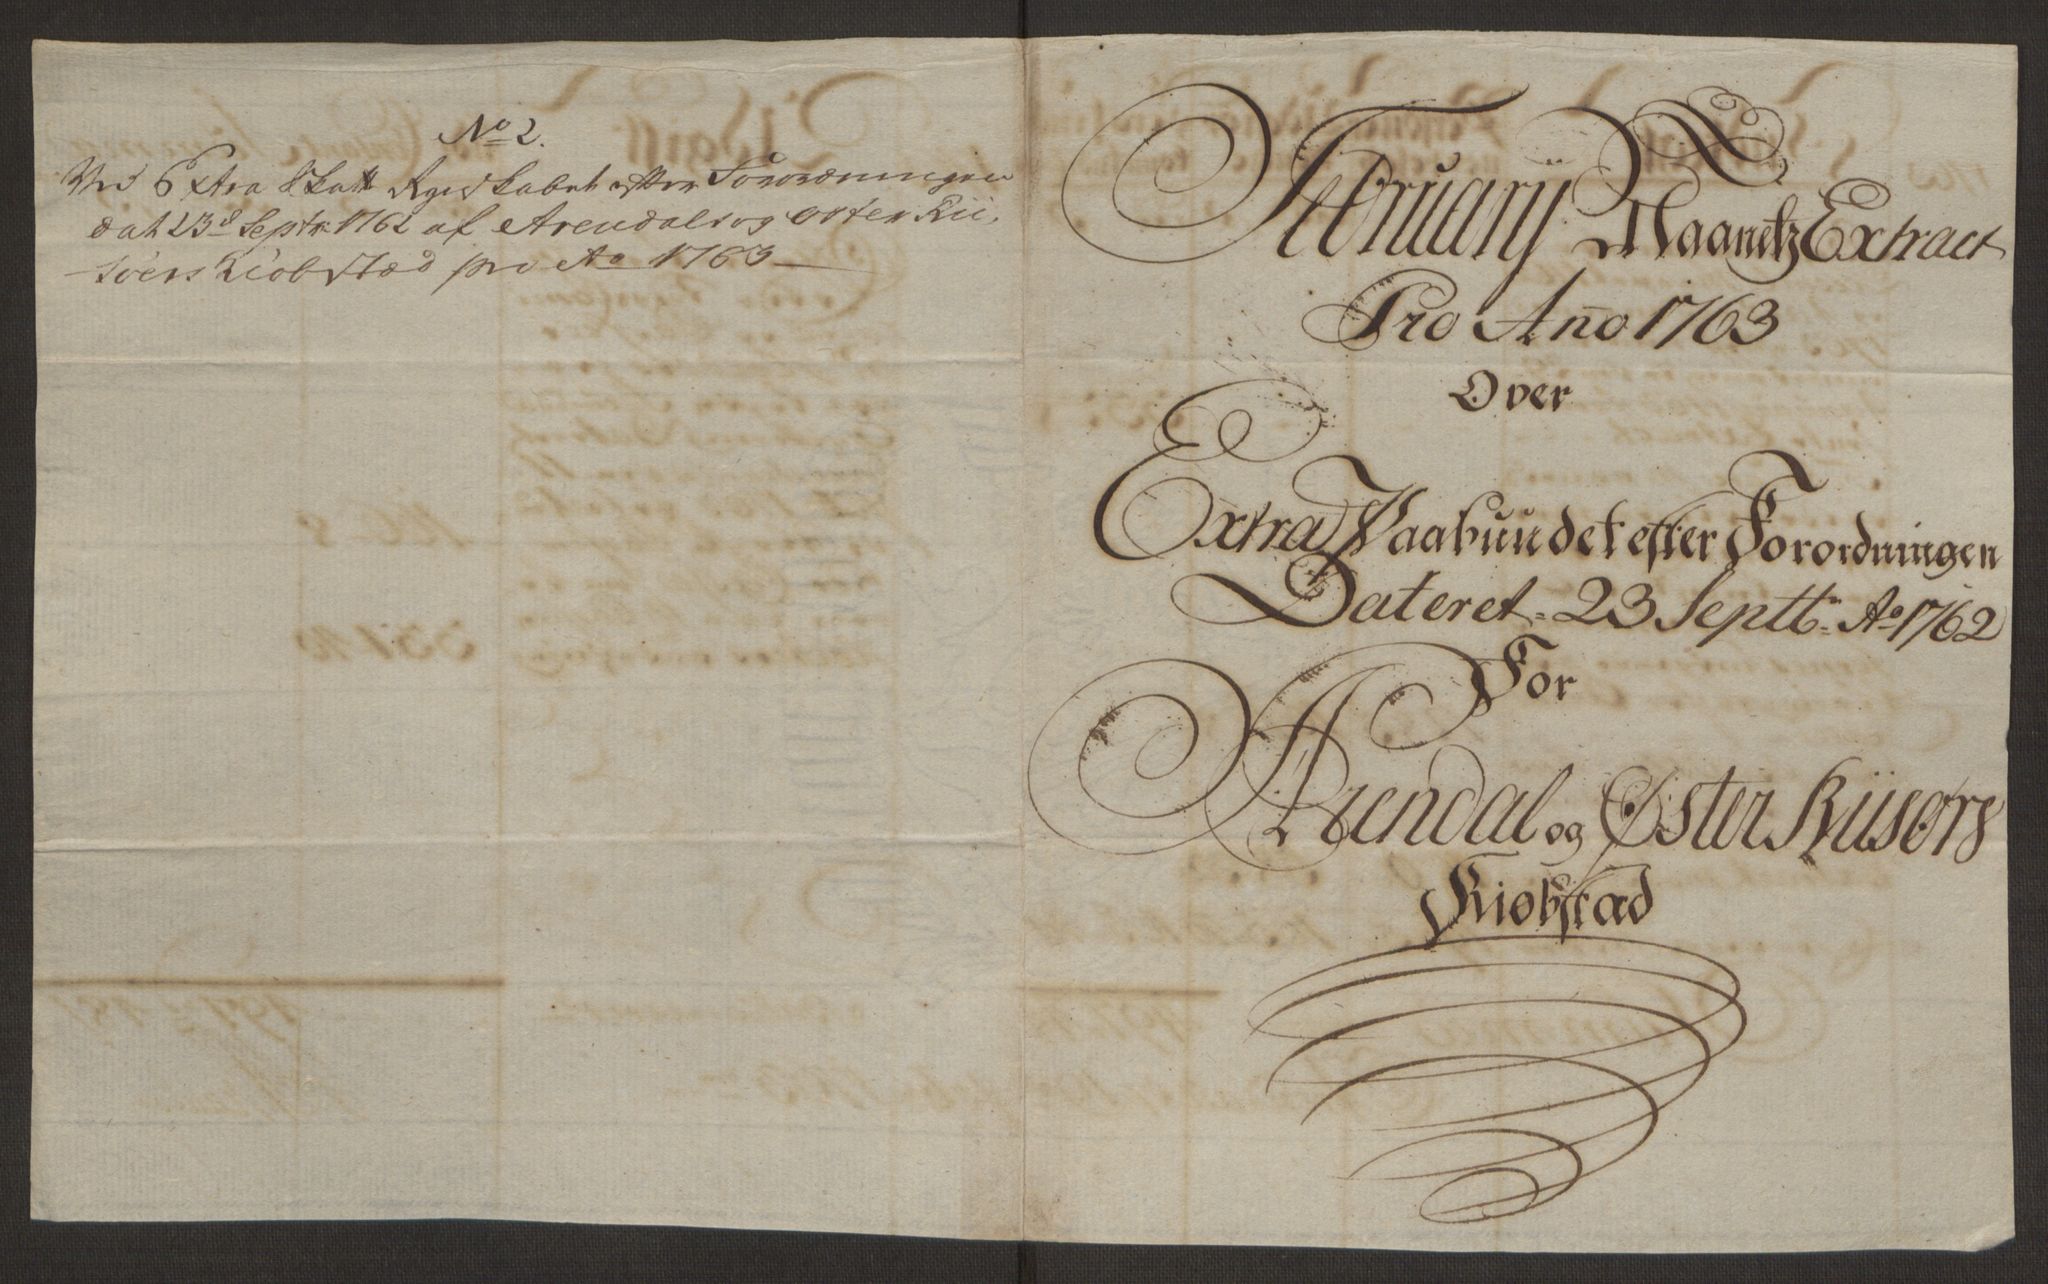 No 2.
Ved Extra Skatt Regnskabet efter Forordningen
dat 23d Septr 1762 af Arendals og Øster Rii-
søers Kiøbstæd pro Ao 1763
Februarij Maanetz Extract
Pro Anno 1763
Over
Extra Paabuudet efter Forordningen
Dateret 23 Septbr: Ao 1762
For
Arendal og Øster Riisørs
Kiøbstæd